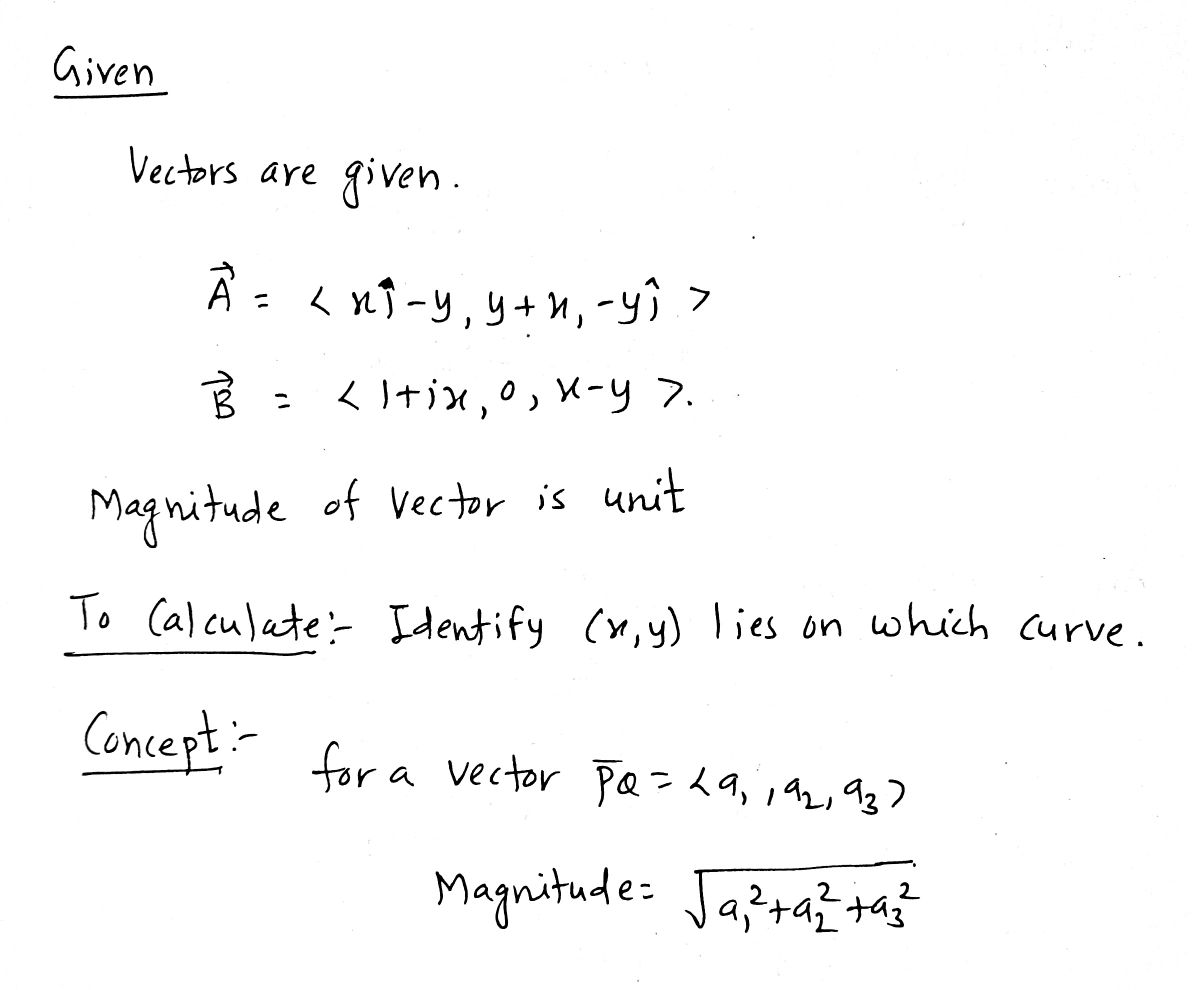 Given
Vectors are given.
A⃗ = < xî-y, y+x, -yĵ >
B⃗ = < 1+ix, 0, x-y >.
Magnitude of Vector is unit
To Calculate:- Identify (x,y) lies on which curve.
Concept:- for a vector P̅Q̅ = <a₁, a₂, a₃>
Magnitude= √a₁²+a₂²+a₃²